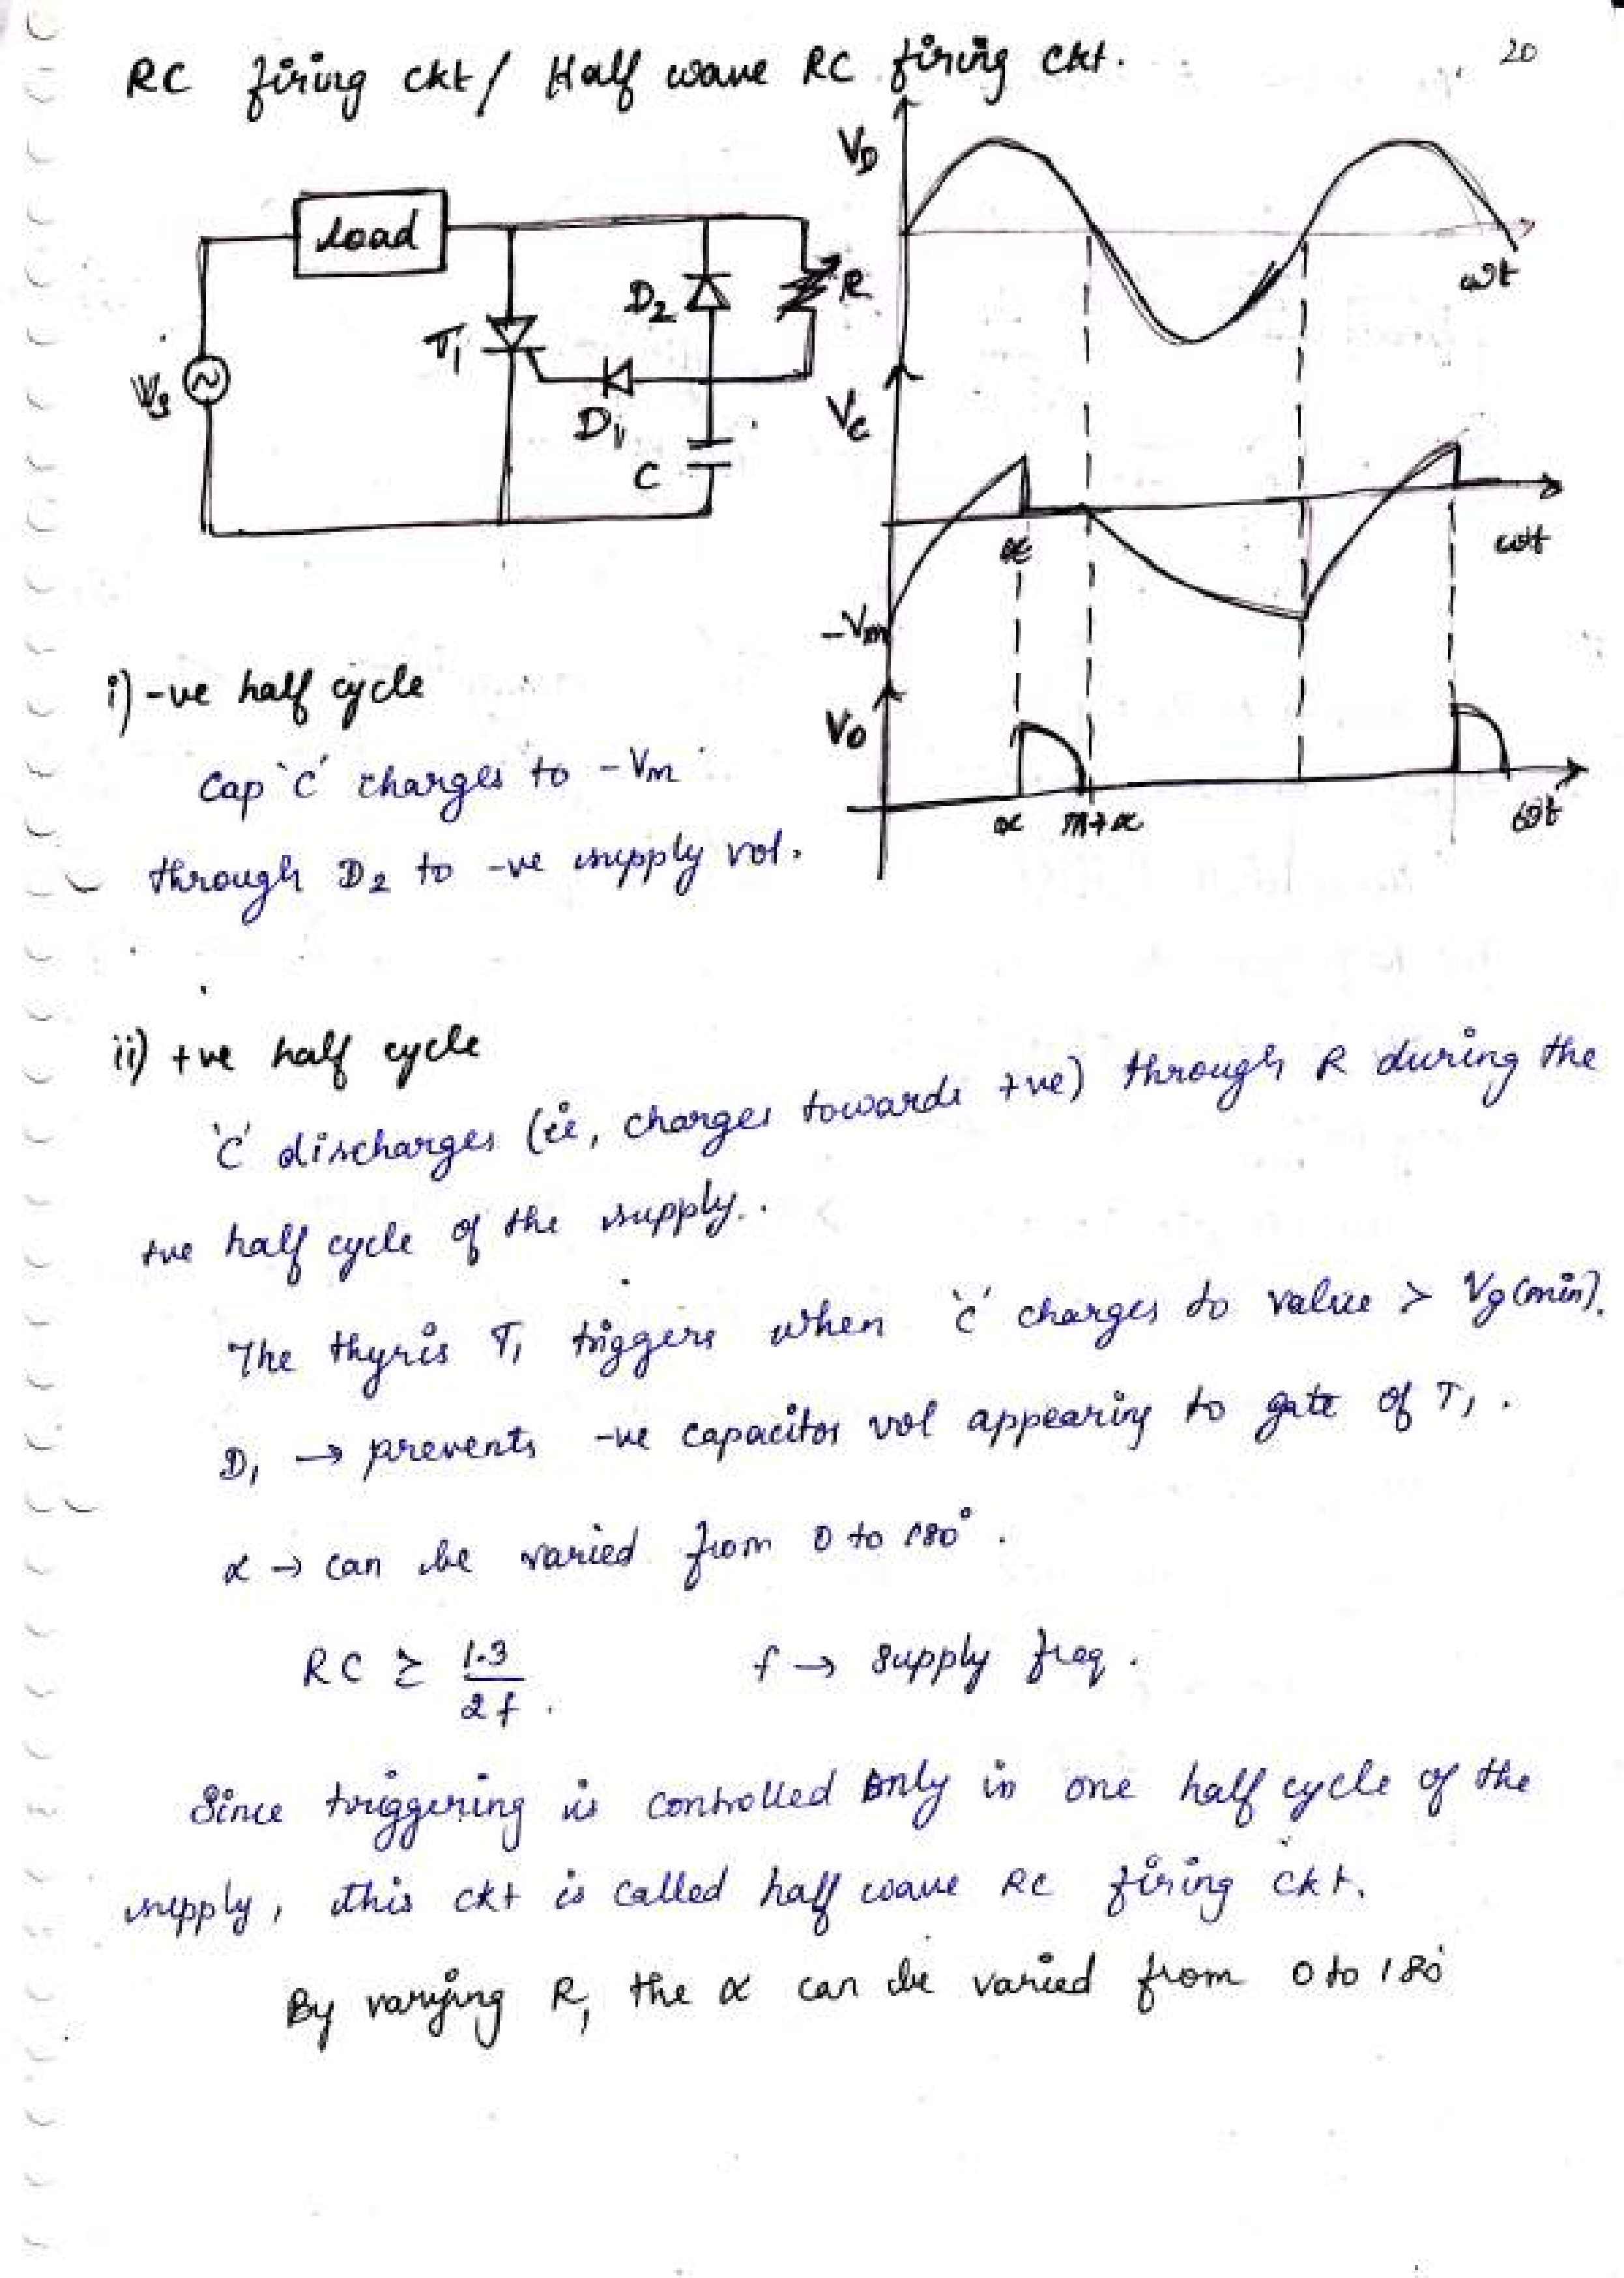 20
RC firing ckt / Half wave RC firing ckt.
Load
T1
D2
R
D1
C
Vs
VD
ωt
Vc
α
ωt
-Vm
Vo
α π+α
ωt
i) -ve half cycle
Cap 'C' charges to -Vm
through D2 to -ve supply vol.
ii) +ve half cycle
'C' discharges (ie, charges towards +ve) through R during the
+ve half cycle of the supply..
The thyris T1 triggers when 'C' charges to value > Vg(min).
D1 → prevents -ve capacitor vol appearing to gate of T1.
α → can be varied from 0 to 180°.
RC ≥ 1.3/2f. f → supply freq.
Since triggering is controlled only in one half cycle of the
supply, this ckt is called half wave RC firing ckt.
By varying R, the α can be varied from 0 to 180°